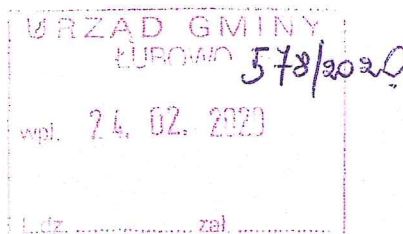 URZĄD GMINY
ŁUBOWO 578/2020
wpł. 24. 02. 2020
L.dz. .................... zał. ....................